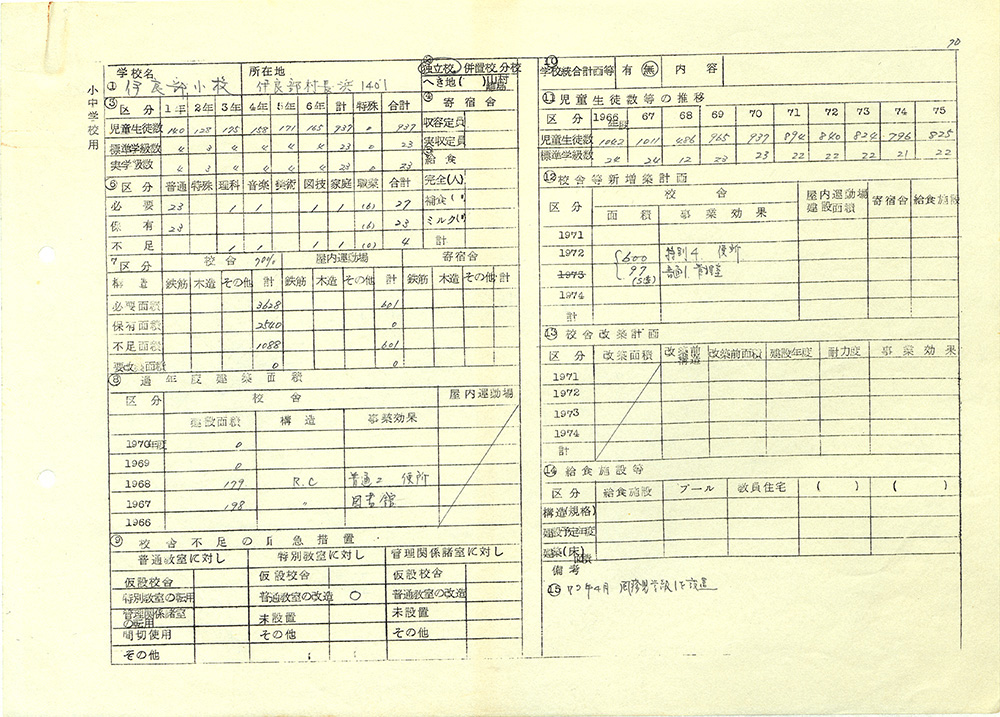 70
小中学校用
学校名 所在地
① 伊良部小校 伊良部村長浜1401
② 独立校 併置校 分校
へき地( ) 山村 離島
③ 区分 1年 2年 3年 4年 5年 6年 計 特殊 合計
児童生徒数 140 128 175 158 171 165 937 0 937
標準学級数 4 3 4 4 4 4 23 0 23
実学級数 4 3 4 4 4 4 23 0 23
④ 寄宿舎
収容定員
実収定員
給食
完全(人)
補食( )
ミルク( )
計
⑥ 区分 普通 特殊 理科 音楽 美術 図技 家庭 職業 合計
必要 23 1 1 1 1 (6) 27
保有 23 (6) 23
不足 1 1 1 1 (0) 4
7 区分 校舎 70% 屋内運動場 寄宿舎
構造 鉄筋 木造 その他 計 鉄筋 木造 その他 計 鉄筋 木造 その他 計
必要面積 3628 601
保有面積 2540 0
不足面積 1088 601
要改築面積 0 0
⑧ 過年度建築面積
区分 校舎 屋内運動場
建設面積 構造 事業効果
1970年度 0
1969 0
1968 179 R.C 普通2 便所
1967 198 〃 図書館
1966
⑨ 校舎不足の応急措置
普通教室に対し 特別教室に対し 管理関係諸室に対し
仮設校舎 仮設校舎 仮設校舎
特別教室の転用 普通教室の改造 ○ 普通教室の改造
管理関係諸室の転用 未設置 未設置
間切使用 その他 その他
その他
⑩ 学校統合計画等 有 無 内容
⑪ 児童生徒数等の推移
区分 1966年度 67 68 69 70 71 72 73 74 75
児童生徒数 1042 1011 486 965 937 894 840 824 796 825
標準学級数 24 24 12 23 23 22 22 22 21 22
⑫ 校舎等新増築計画
区分 校舎 屋内運動場建設面積 寄宿舎 給食施設
面積 事業効果
1971
1972 600 特別4 便所
1973 97 普通1 管理室
1974
計
⑬ 校舎改築計画
区分 改築面積 改築前構造 改築前面積 建設年度 耐力度 事業効果
1971
1972
1973
1974
計
⑭ 給食施設等
区分 給食施設 プール 教員住宅 ( ) ( )
構造(規格)
建設予定年度
建築(床)面積
備考
⑮